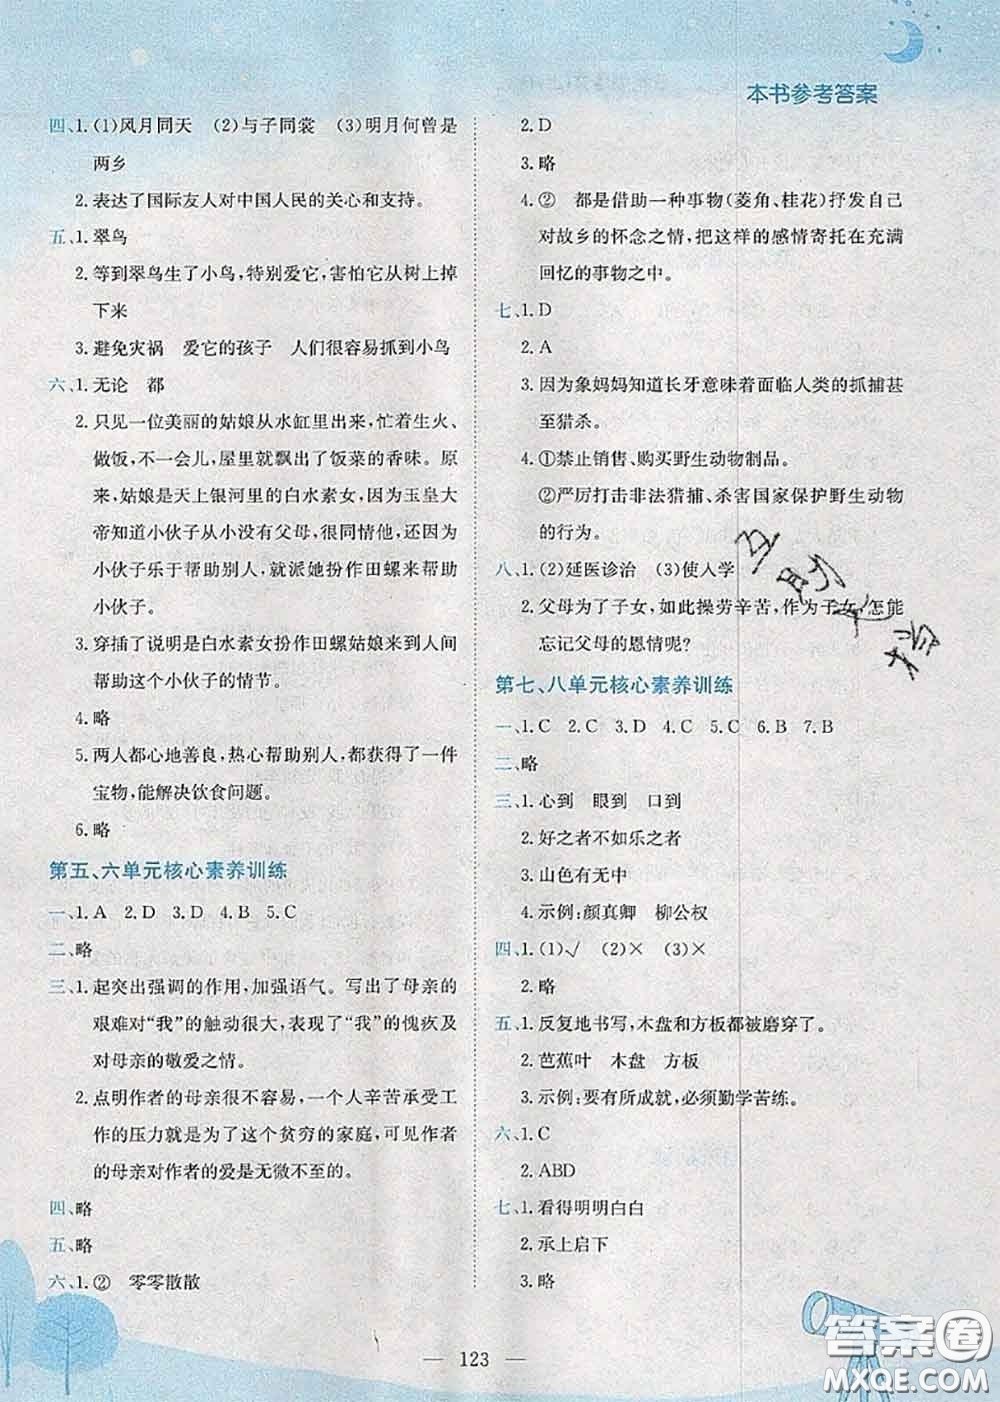 本书参考答案
四、1.(1)风月同天 (2)与子同裳 (3)明月何曾是
两乡
2.表达了国际友人对中国人民的关心和支持。
五、1.翠鸟
2.等到翠鸟生了小鸟,特别爱它,害怕它从树上掉
下来
3.避免灾祸 爱它的孩子 人们很容易抓到小鸟
六、1.无论 都
2.只见一位美丽的姑娘从水缸里出来,忙着生火、
做饭,不一会儿,屋里就飘出了饭菜的香味。原
来,姑娘是天上银河里的白水素女,因为玉皇大
帝知道小伙子从小没有父母,很同情他,还因为
小伙子乐于帮助别人,就派她扮作田螺来帮助
小伙子。
3.穿插了说明是白水素女扮作田螺姑娘来到人间
帮助这个小伙子的情节。
4.略
5.两人都心地善良,热心帮助别人,都获得了一件
宝物,能解决饮食问题。
6.略
第五、六单元核心素养训练
一、1.A 2.D 3.D 4.B 5.C
二、略
三、1.起突出强调的作用,加强语气。写出了母亲的
艰难对“我”的触动很大,表现了“我”的愧疚及
对母亲的敬爱之情。
2.点明作者的母亲很不容易,一个人辛苦承受工
作的压力就是为了这个贫穷的家庭,可见作者
的母亲对作者的爱是无微不至的。
四、略
五、略
六、1.② 零零散散
2.D
3.略
4.② 都是借助一种事物(菱角、桂花)抒发自己
对故乡的怀念之情,把这样的感情寄托在充满
回忆的事物之中。
七、1.D
2.A
3.因为象妈妈知道长牙意味着面临人类的抓捕甚
至猎杀。
4.①禁止销售、购买野生动物制品。
②严厉打击非法猎捕、杀害国家保护野生动物
的行为。
八、1.(2)延医诊治 (3)使入学
2.父母为了子女,如此操劳辛苦,作为子女,怎能
忘记父母的恩情呢?
第七、八单元核心素养训练
一、1.C 2.C 3.D 4.C 5.C 6.B 7.B
二、略
三、1.心到 眼到 口到
2.好之者不如乐之者
3.山色有无中
4.示例:颜真卿 柳公权
四、1.(1)√ (2)× (3)×
2.略
五、1.反复地书写,木盘和方板都被磨穿了。
2.芭蕉叶 木盘 方板
3.示例:要有所成就,必须勤学苦练。
六、1.C
2.ABD
七、1.看得明明白白
2.承上启下
3.略
123
答案圈
MXQE.COM